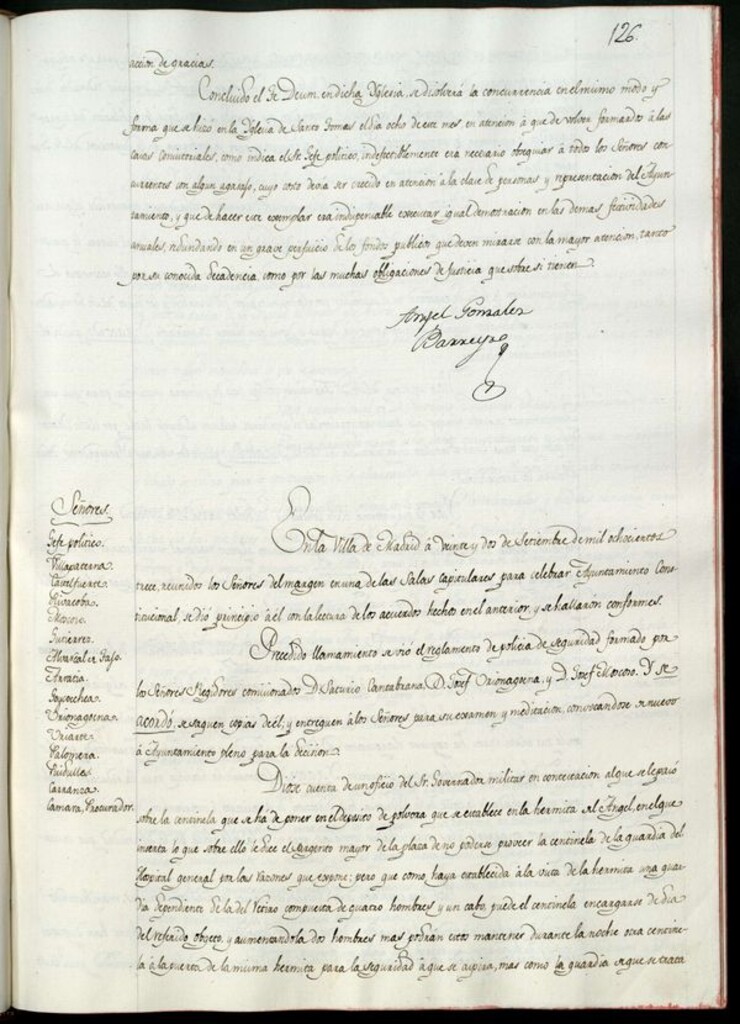 126.
accion de gracias.
Concluido el Te Deum en dicha Yglesia, se disolverá la concurrencia en el mismo modo y
forma que se hizo en la Yglesia de Santo Tomas el dia ocho de este mes en atencion á que de volver formados á las
casas consistoriales, como indica el Sr. Gefe político, indefectiblemente era necesario obsequiar á todos los Señores con-
currentes con algun agasajo, cuyo costo devia ser crecido en atencion á la clase de personas y representacion del Ayun-
tamiento, y que de hacer este exemplar era indispensable executar igual demostracion en las demas festividades
anuales, redundando en un grave perjuicio de los fondos publicos que deven mirarse con la mayor atencion, tanto
por su conocida decadencia, como por las muchas obligaciones de Justicia que sobre si tienen.
Angel Gonzalez
Barreyro
Señores
Gefe político.
Villapaterna.
Castelfuerte.
Rivacoba.
Moscoso.
Gutierrez.
Arratia.
Goycoechea.
Urionagoena.
Uriarte.
Palomera.
Carranza.
Camara, Procurador.
En la Villa de Madrid á veinte y dos de Setiembre de mil ochocientos
trece, reunidos los Señores del margen en una de las Salas capitulares para celebrar Ayuntamiento Cons-
titucional, se dió principio á él con la lectura de los acuerdos hechos en el anterior, y se hallaron conformes.
Precedido llamamiento se vió el reglamento de policia de seguridad formado por
los Señores Regidores comisionados D. Saturio Cantabrana, D. Josef Urionagoena, y D. Josef Moscoso. Y se
acordó, se saquen copias de él, y entreguen á los Señores para su examen y meditacion, convocandose de nuevo
á Ayuntamiento pleno para la decision.
Diose cuenta de un oficio del Sr. Governador militar en contextacion al que se le pasó
sobre la centinela que se ha de poner en el deposito de polvora que se establece en la hermita del Angel, en el que
inserta lo que sobre ello le dice el Sargento mayor de la plaza de no poderse proveer la centinela de la guardia del
Hospital general por las razones que expone; pero que como haya establecida á la vista de la hermita una guar-
dia dependiente de la del Retiro compuesta de quatro hombres y un cabo, puede el centinela encargarse de dia
del referido objeto, y aumentandola dos hombres mas podrán estos mantener durante la noche otra centine-
la á la puerta de la misma hermita para la seguridad á que se aspira, mas como la guardia de que se trata